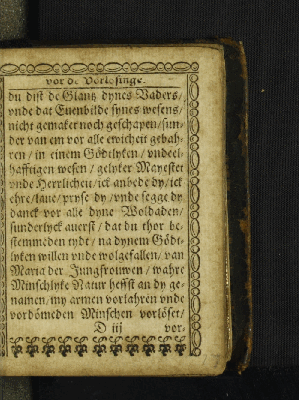 vor de Vorlosinge.
du bist de Glantz dynes Vaders/
vnde dat Euenbilde synes wesens/
nicht gemaket noch geschapen/sun-
der van em vor alle ewicheit gebah-
ren/ in einem Gödtlyken/ vndeel-
hafftigen wesen/ gelyker Mayestet
vnde Herrlicheit/ ick anbede dy/ ick
ehre/laue/ pryse dy/ vnde segge dy
danck vor alle dyne Woldaden/
sunderlyck auerst/ dat du thor be-
stemmeden tydt/ na dynem Gödt-
lyken willen vnde wolgefallen/ van
Maria der Jungfrouwen/ wahre
Minschlyke Natur heffst an dy ge-
namen/ my armen vorlahren vnde
vordömeden Minschen vorlöset/
D iij vor-